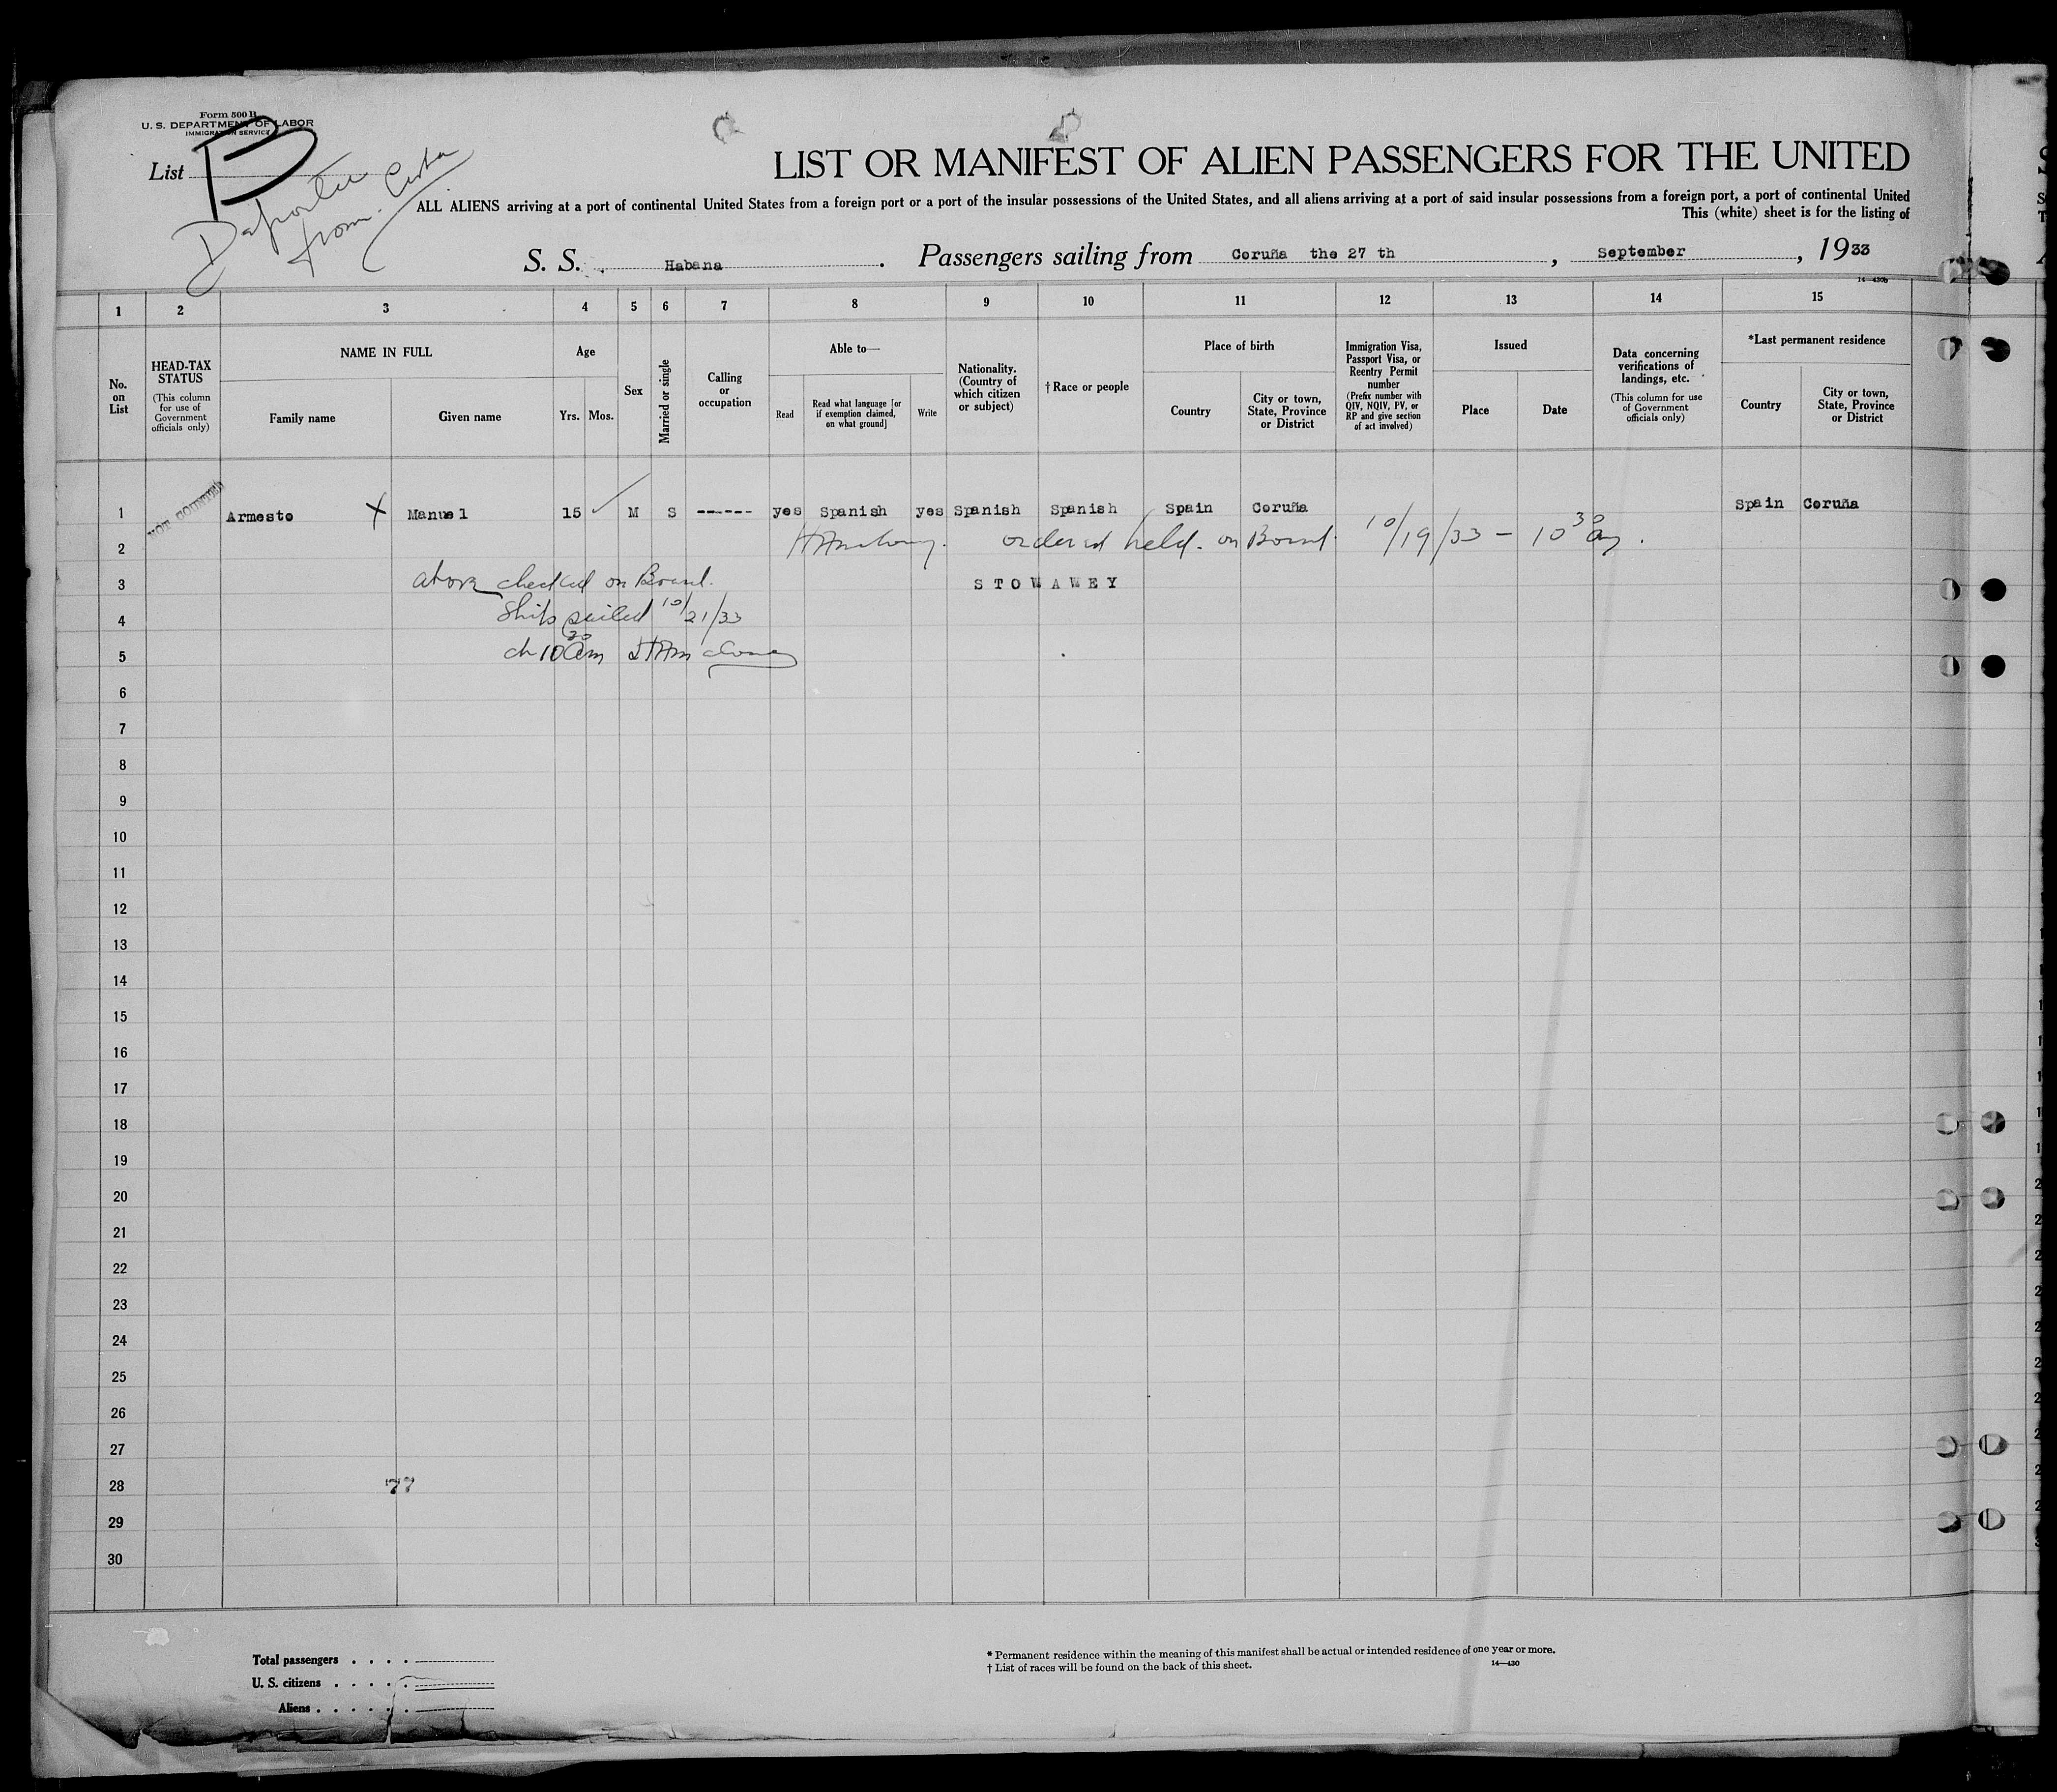 Form 500 B
U. S. DEPARTMENT OF LABOR
IMMIGRATION SERVICE
List B
from Cuba
LIST OR MANIFEST OF ALIEN PASSENGERS FOR THE UNITED
ALL ALIENS arriving at a port of continental United States from a foreign port or a port of the insular possessions of the United States, and all aliens arriving at a port of said insular possessions from a foreign port, a port of continental United
This (white) sheet is for the listing of
S. S. Habana. Passengers sailing from Coruña the 27 th, September, 1933
14—430b
1 2 3 4 5 6 7 8 9 10 11 12 13 14 15
No. on List
HEAD-TAX STATUS (This column for use of Government officials only)
NAME IN FULL
Family name Given name
Age
Yrs. Mos.
Sex
Married or single
Calling or occupation
Able to—
Read Read what language [or if exemption claimed, on what ground] Write
Nationality. (Country of which citizen or subject)
†Race or people
Place of birth
Country City or town, State, Province or District
Immigration Visa, Passport Visa, or Reentry Permit number (Prefix number with QIV, NQIV, PV, or RP and give section of act involved)
Issued
Place Date
Data concerning verifications of landings, etc. (This column for use of Government officials only)
*Last permanent residence
Country City or town, State, Province or District
1 NOT COUNTED Armesto X Manuel 15 ✓ M S ------ yes Spanish yes Spanish Spanish Spain Coruña Spain Coruña
2 ordered held on Board. 10/19/33 – 10 30 am.
3 above checked on Board. STOWAWEY
4 Ship sailed 10/21/33
5 10 30 am
6
7
8
9
10
11
12
13
14
15
16
17
18
19
20
21
22
23
24
25
26
27
28 77
29
30
Total passengers . . . .
U. S. citizens . . . . .
Aliens . . . . . .
* Permanent residence within the meaning of this manifest shall be actual or intended residence of one year or more.
† List of races will be found on the back of this sheet. 14—430